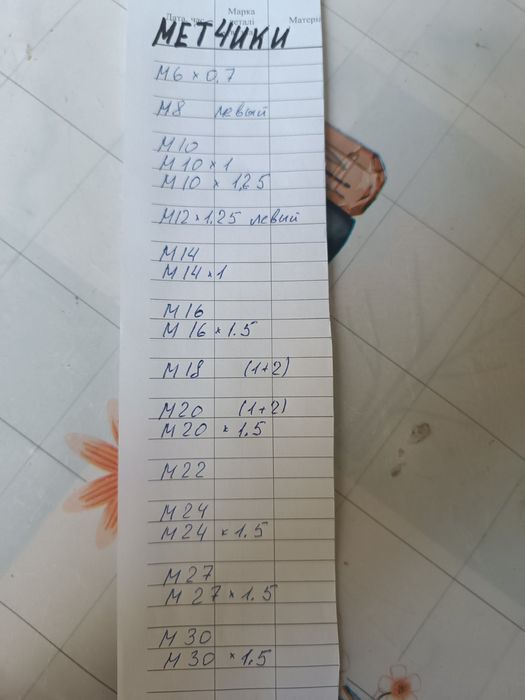 Дата, час
Марка
деталі
Матері
МЕТЧИКИ
М6 × 0,7
М8 левый
М10
М10 × 1
М10 × 1,25
М12 × 1.25 левый
М14
М14 × 1
М16
М16 × 1.5
М18 (1+2)
М20 (1+2)
М20 × 1.5
М22
М24
М24 × 1.5
М27
М27 × 1.5
М30
М30 × 1.5